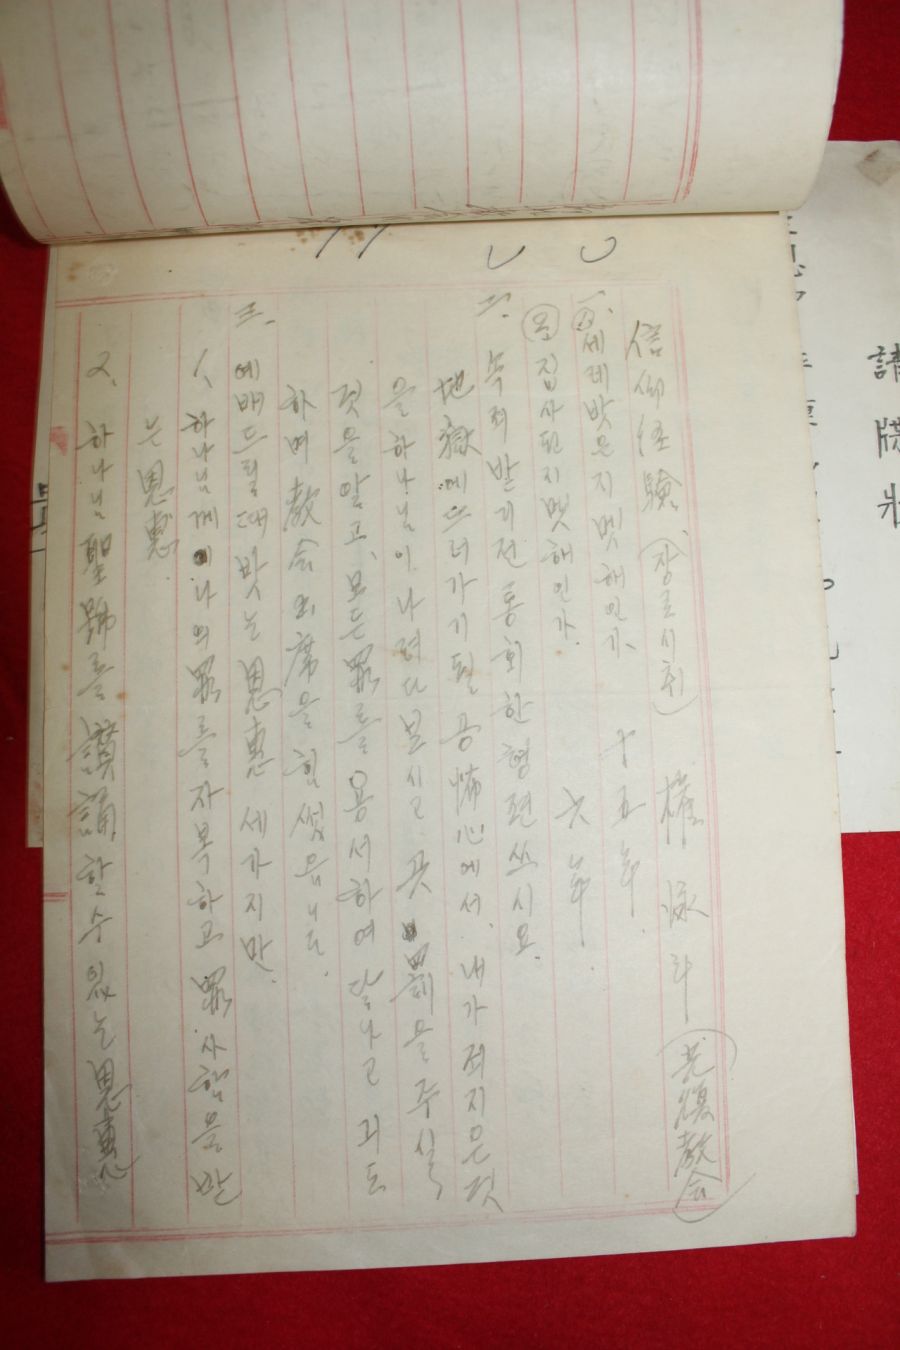 信仰經驗、(장로시취) 權泳斗 (光復教会)
一. ㉮ 세레밧은지 몟해인가、 十五年.
㉯ 집사된지 몟해인가. 六年.
二. 속죄 받기전 통회한 형편쓰시요.
地獄에 뜨러가기 될 공怖心에서. 내가 죄지은 것
을 하나님이. 나려다 보시고. 곳 罰을 주실
것을 알고、모든 罪를 용서하여 달나고 긔도
하며 教会出席을 힘썻읍니다.
三. 예배드릴때 밧는 恩惠 세가지만.
1、하나님께 나의 罪를 자복하고 罪사함을 받
는 恩惠.
2、하나님 聖號를 讃誦할수 있는 恩惠
請牒狀